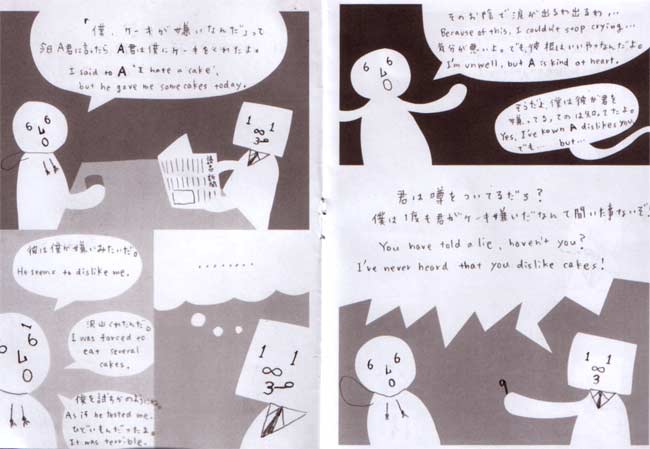 「僕、ケーキが嫌いなんだ」って
今日A君に言ったらA君は僕にケーキをくれたよ。
I said to A 'I hate a cake',
but he gave me some cakes today.
彼は僕が嫌いみたいだ。
He seems to dislike me.
沢山くれたんだ。
I was forced to
eat several
cakes.
僕を試すかのように。
As if he tested me.
ひどいもんだったよ。
It was terrible.
........
そのお陰で涙が出るわ出るわ...
Because of this, I couldn't stop crying...
気分が悪いよ。でも、彼根はいいやつなんだよ。
I'm unwell, but A is kind at heart.
そうだよ、僕は彼が君を
嫌ってるってのは知ってたよ。
Yes, I've known A dislikes you,
でも... but...
君は嘘をついてるだろ?
僕は1度も君がケーキ嫌いだなんて聞いた事ないぞ!
You have told a lie, haven't you?
I've never heard that you dislike cakes!